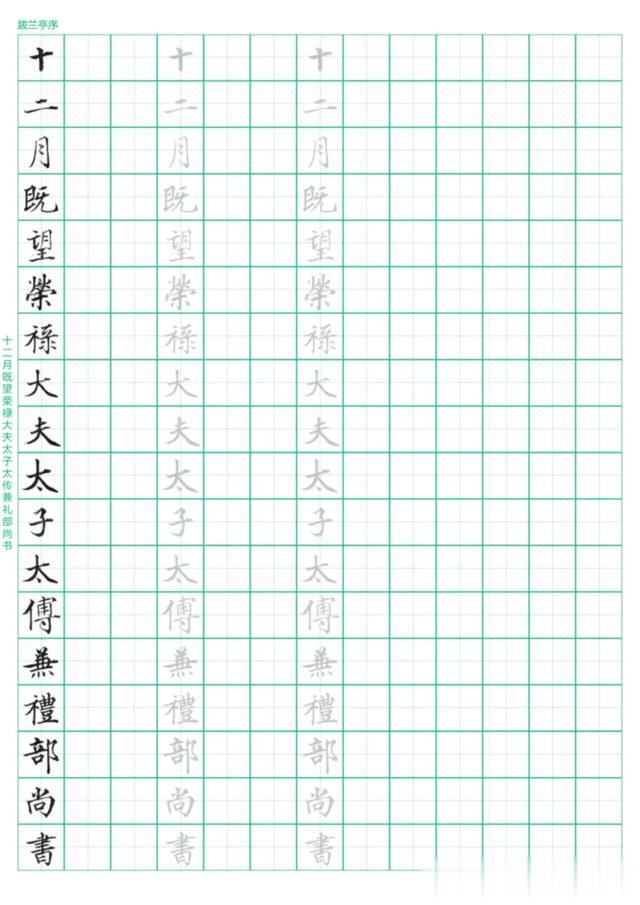 跋兰亭序
十二月既望荣禄大夫太子太传兼礼部尚书
十二月既望榮禄大夫太子太傅兼禮部尚書
十二月既望榮禄大夫太子太傅兼禮部尚書
十二月既望榮禄大夫太子太傅兼禮部尚書